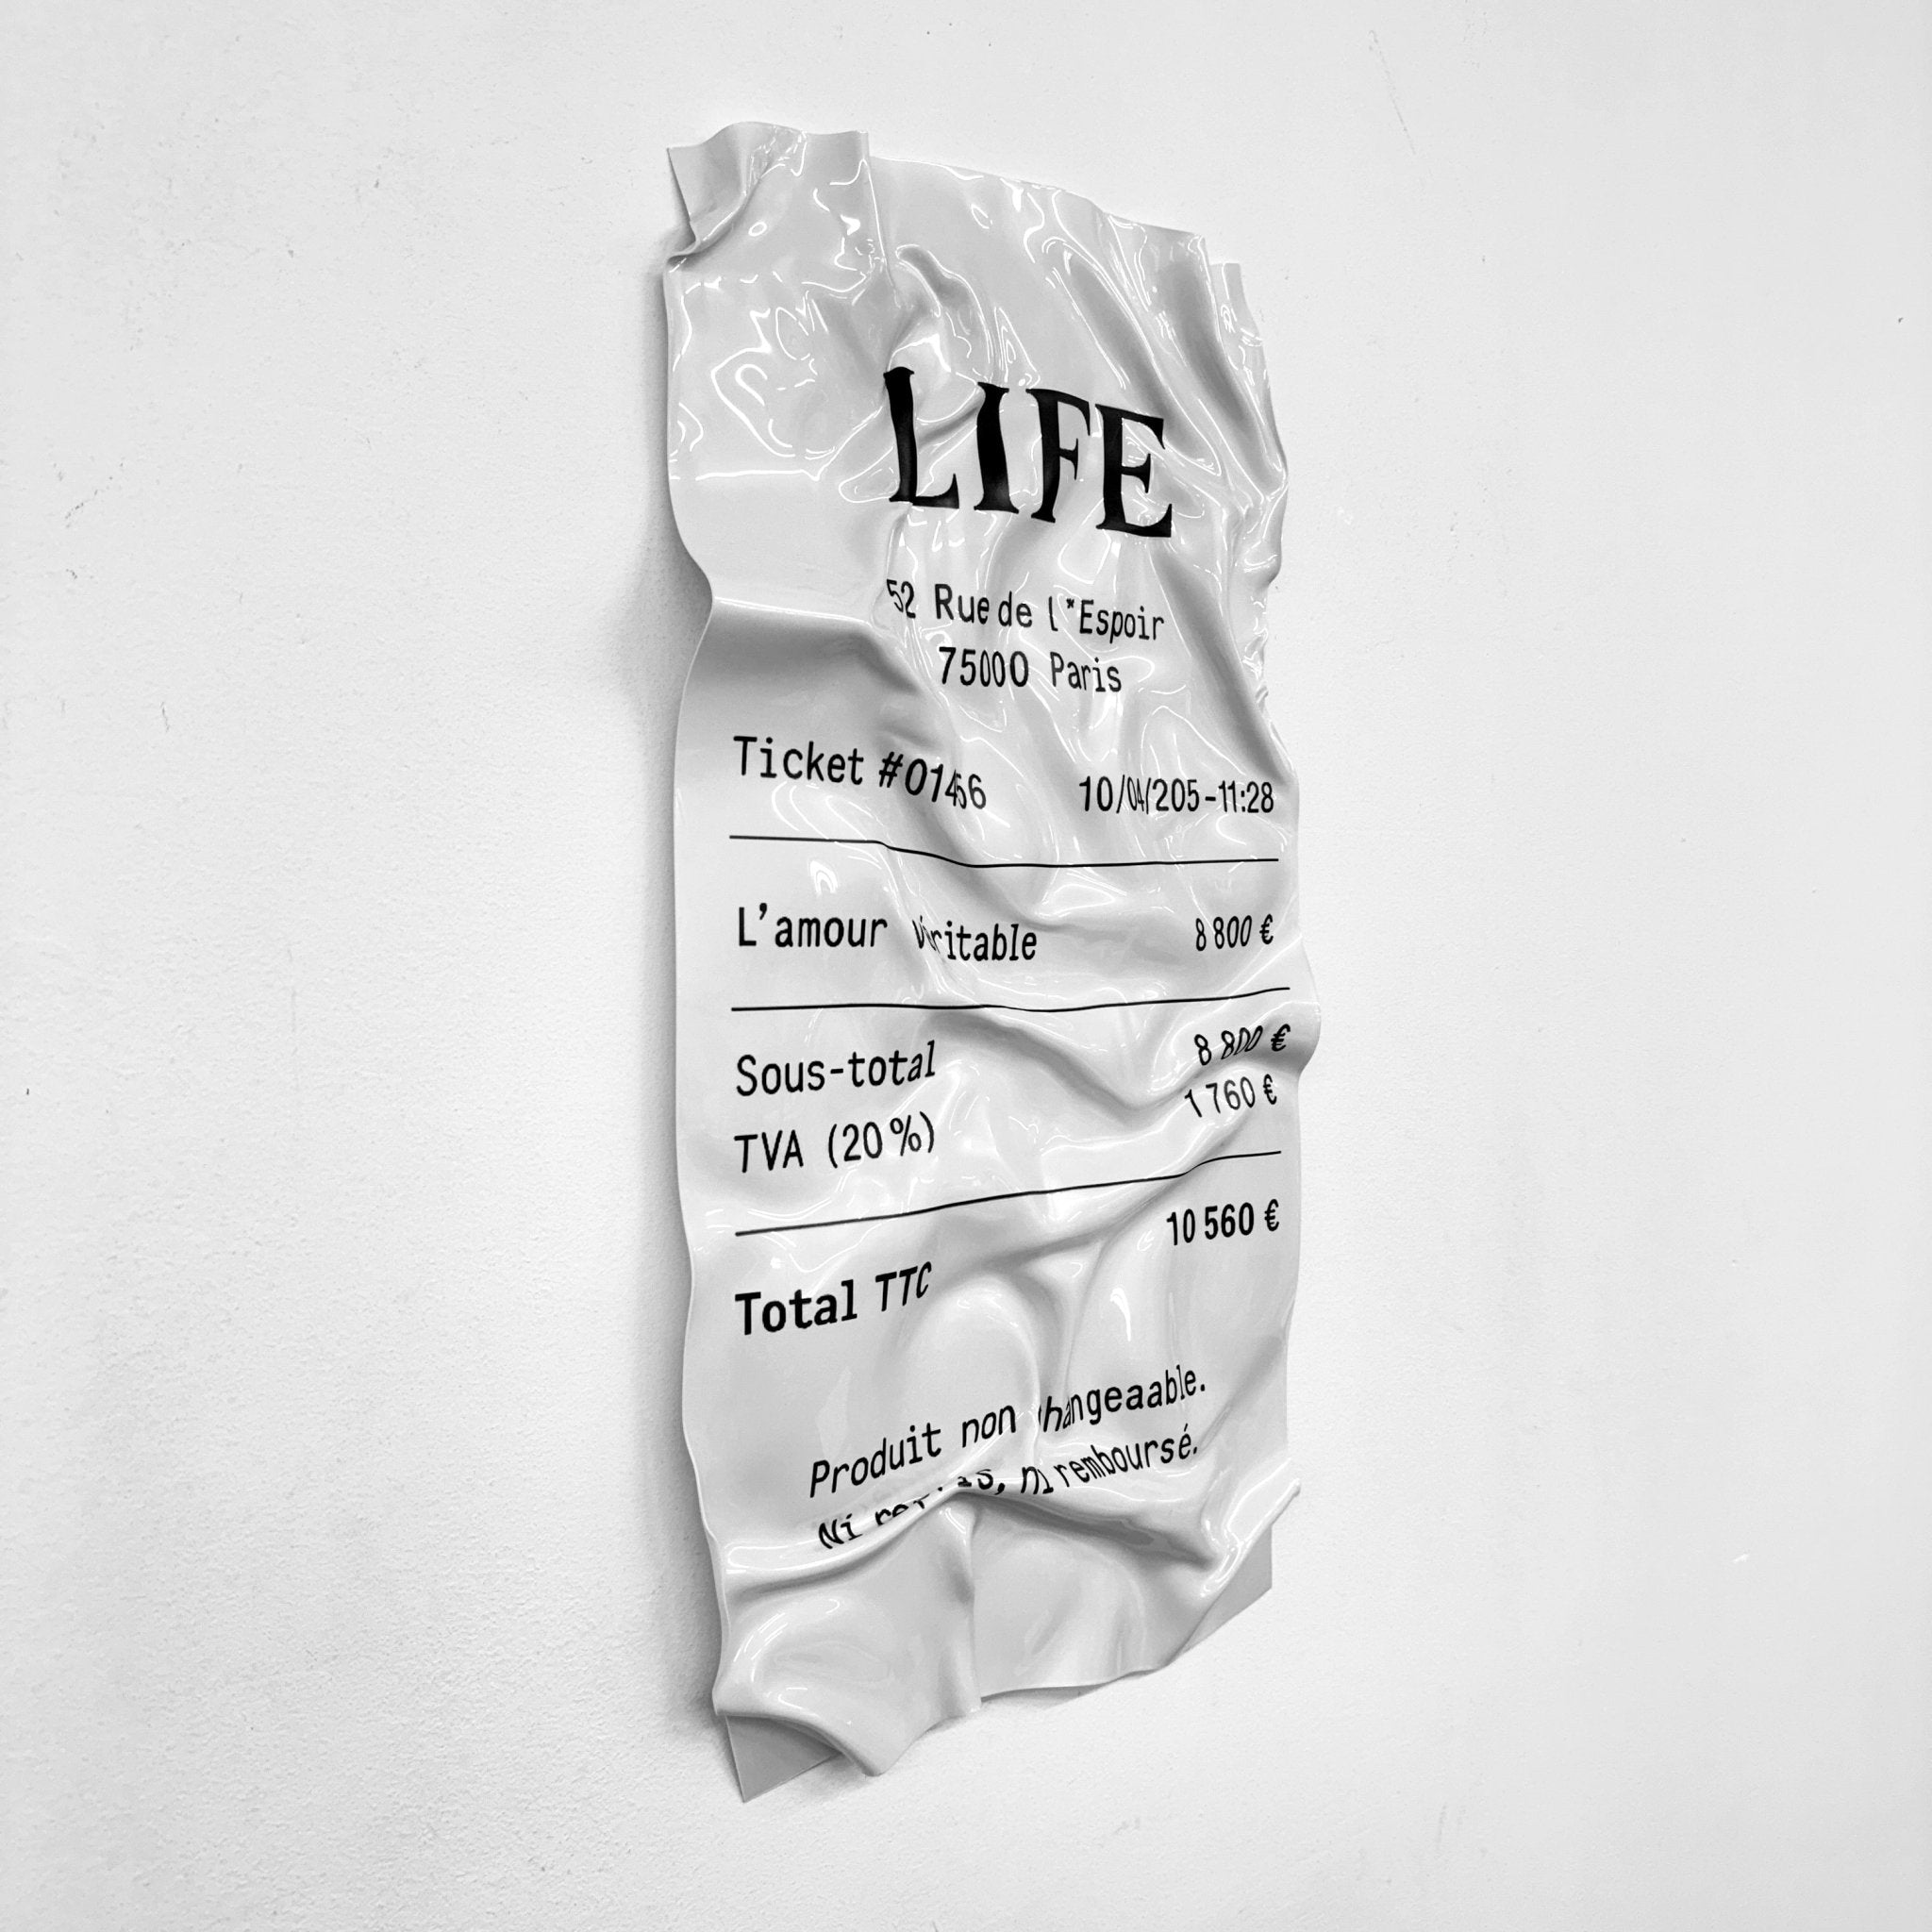 LIFE
52 Rue de l'Espoir
75000 Paris
Ticket #01456 10/04/205-11:28
L'amour 8 800 €
Sous-total 8 800 €
TVA (20%) 1 760 €
Total TTC 10 560 €
Produit non
Ni ni remboursé.